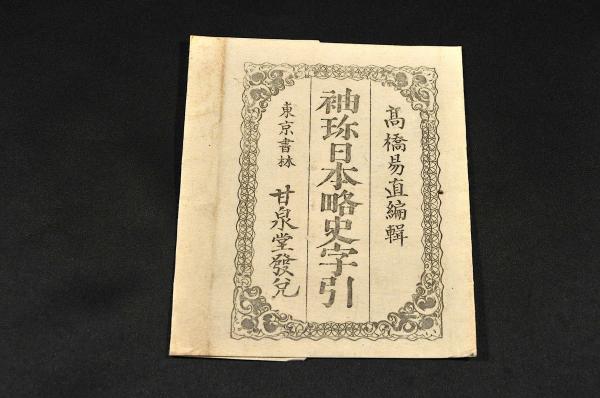 髙橋易直編輯
袖珎日本略史字引
東京書林 甘泉堂發兌